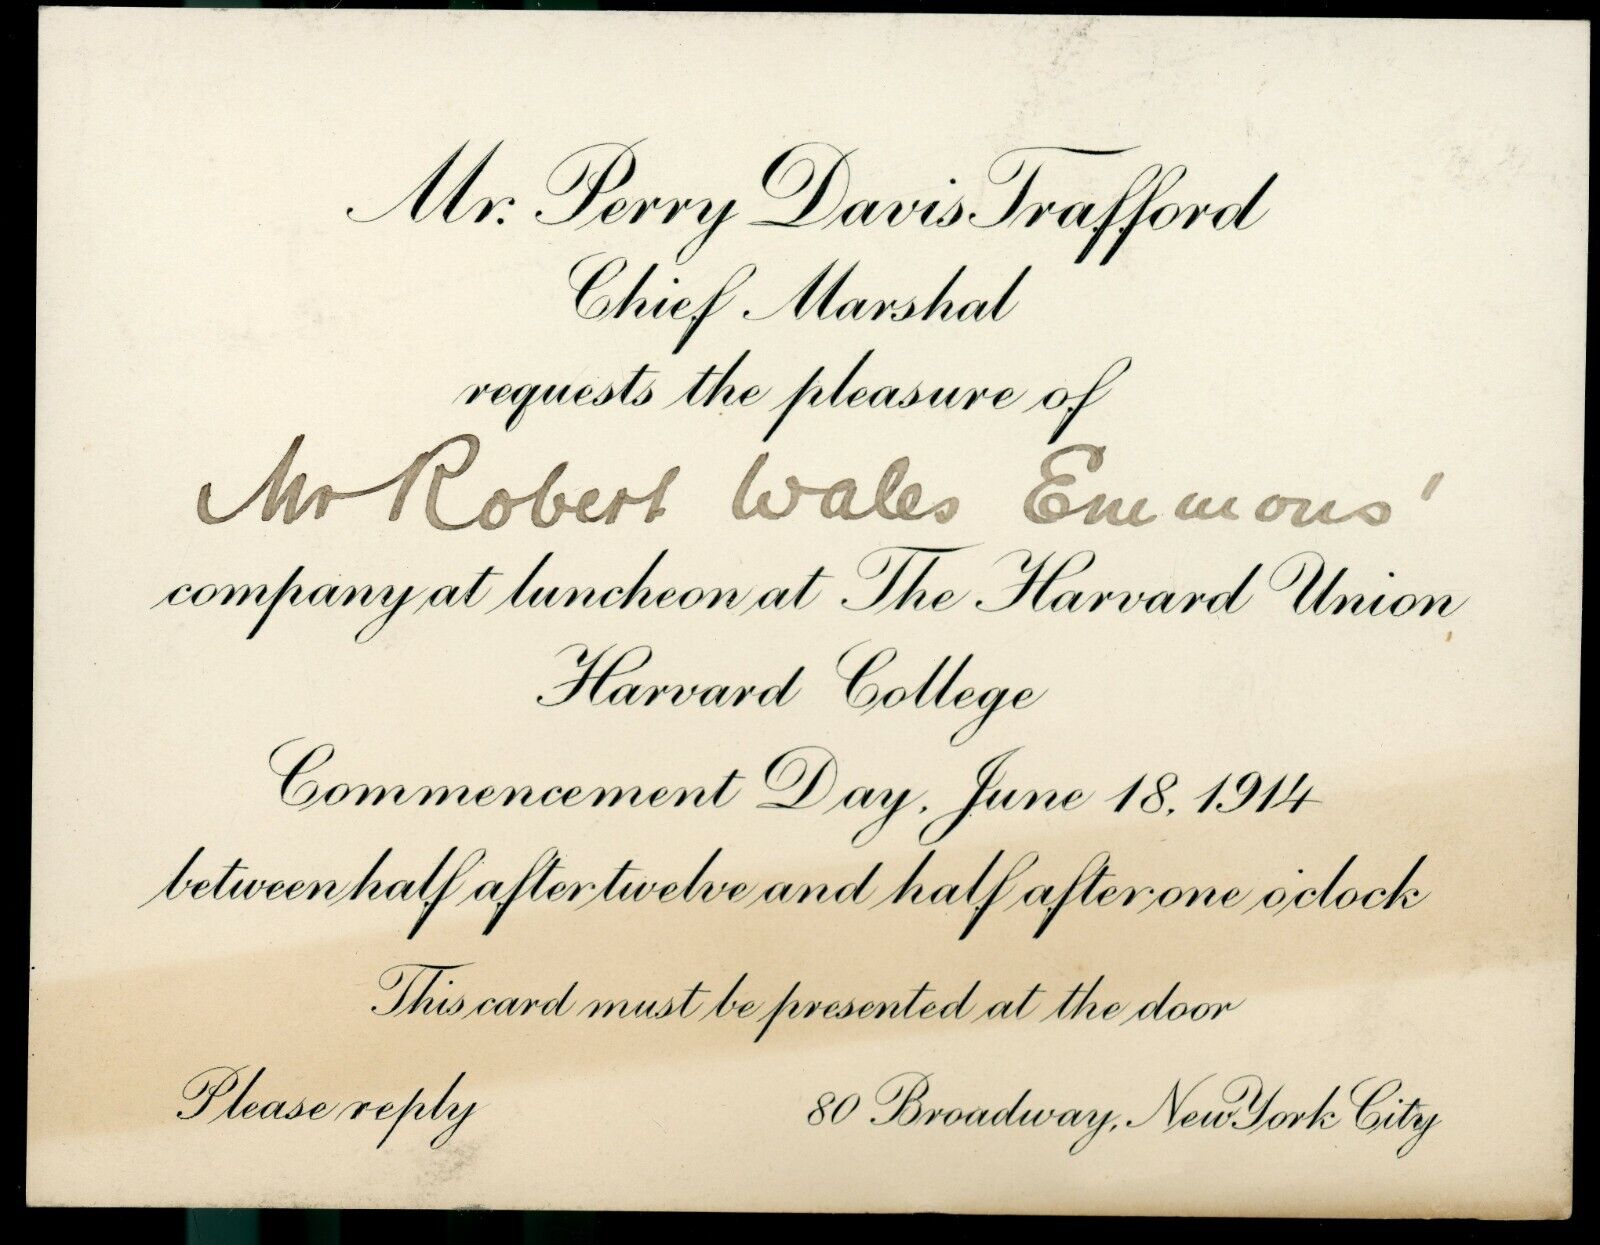 Mr. Perry Davis Trafford
Chief Marshal
requests the pleasure of
Mr Robert Wales Emmons'
company at luncheon at The Harvard Union
Harvard College
Commencement Day, June 18, 1914
between half after twelve and half after one o'clock
This card must be presented at the door
Please reply
80 Broadway, New York City